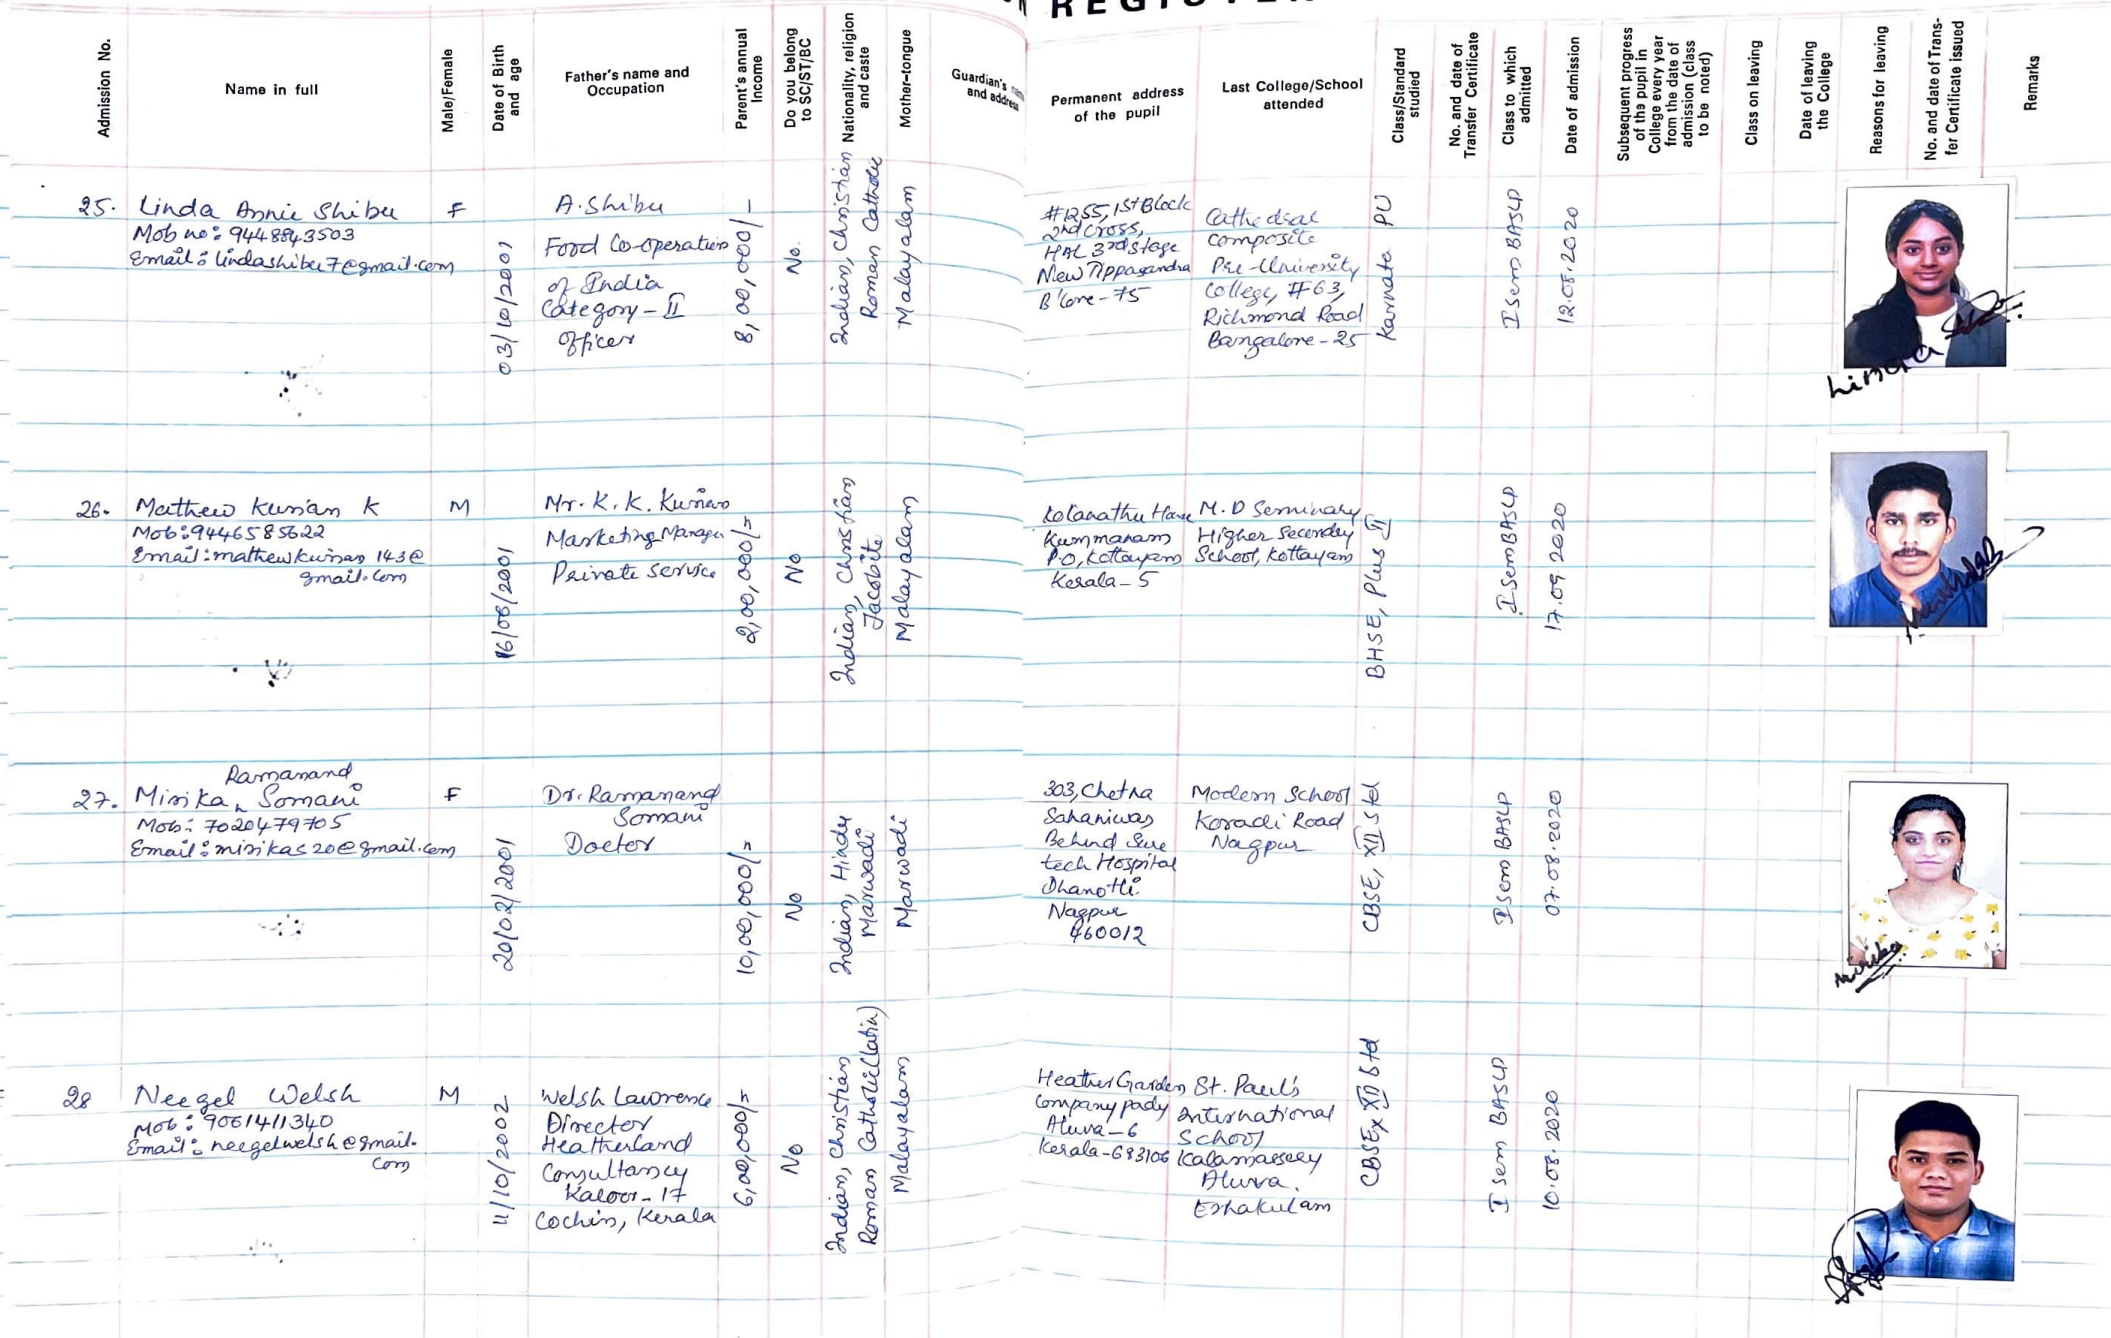 REGISTER
Admission No.
Name in full
Male/Female
Date of Birth and age
Father's name and Occupation
Parent's annual Income
Do you belong to SC/ST/BC
Nationality, religion and caste
Mother-tongue
Guardian's and address
Permanent address of the pupil
Last College/School attended
Class/Standard studied
No. and date of Transfer Certificate
Class to which admitted
Date of admission
Subsequent progress of the pupil in College every year from the date of admission (class to be noted)
Class on leaving
Date of leaving the College
Reasons for leaving
No. and date of Trans-fer Certificate issued
Remarks
25. Linda Annie Shibu
Mob no: 9448843503
Email: lindashibu7@gmail.com
F
03/10/2001
A. Shibu
Food Co-operation
of India
Category - II
Officer
8,00,000/-
No.
Indian, Christian
Roman Catholic
Malayalam
#1255, 1st Block
2nd Cross,
HAL 3rd Stage
New Tippasandra
B'lore - 75
Cathedral
Composite
Pre-University
College, #63,
Richmond Road
Bangalore - 25
Karnata PU
I sem BASLP
12.08.2020
Linda
26. Mathew Kurian K
Mob: 9446585622
Email: mathewkurian143@
gmail.com
M
16/08/2001
Mr. K. K. Kurian
Marketing Manager
Private Service
2,00,000/=
No
Indian, Christian
Jacobite
Malayalam
Kummanam
P.O, Kottayam
Kerala - 5
M. D Seminary
Higher Secondry
School, Kottayam
BHSE, Plus II
I Sem BASLP
17.09.2020
Ramanand
27. Misika Somani
Mob: 7020479705
Email: misikas20@gmail.com
F
20/02/2001
Dr. Ramanand
Somani
Doctor
10,00,000/=
No
Indian, Hindu
Marwadi
Marwadi
303, Chetna
Behind Sure
tech Hospital
Dhanotli
Nagpur
460012
Modern School
Koradi Road
Nagpur
CBSE, XII std
I sem BASLP
07.08.2020
28 Neegel Welsh
Mob: 9061411340
Email: neegelwelsh@gmail.
com
M
11/10/2002
Welsh Lawrence
Director
Heatherland
Consultancy
Kaloor - 17
Cochin, Kerala
6,00,000/=
No
Indian, Christian
Roman Catholic (Latin)
Malayalam
Heather Garden
Companypady
Aluva - 6
Kerala - 683106
St. Paul's
International
School
Kalamassery
Aluva.
Ernakulam
CBSE, XII std
I sem BASLP
10.08.2020